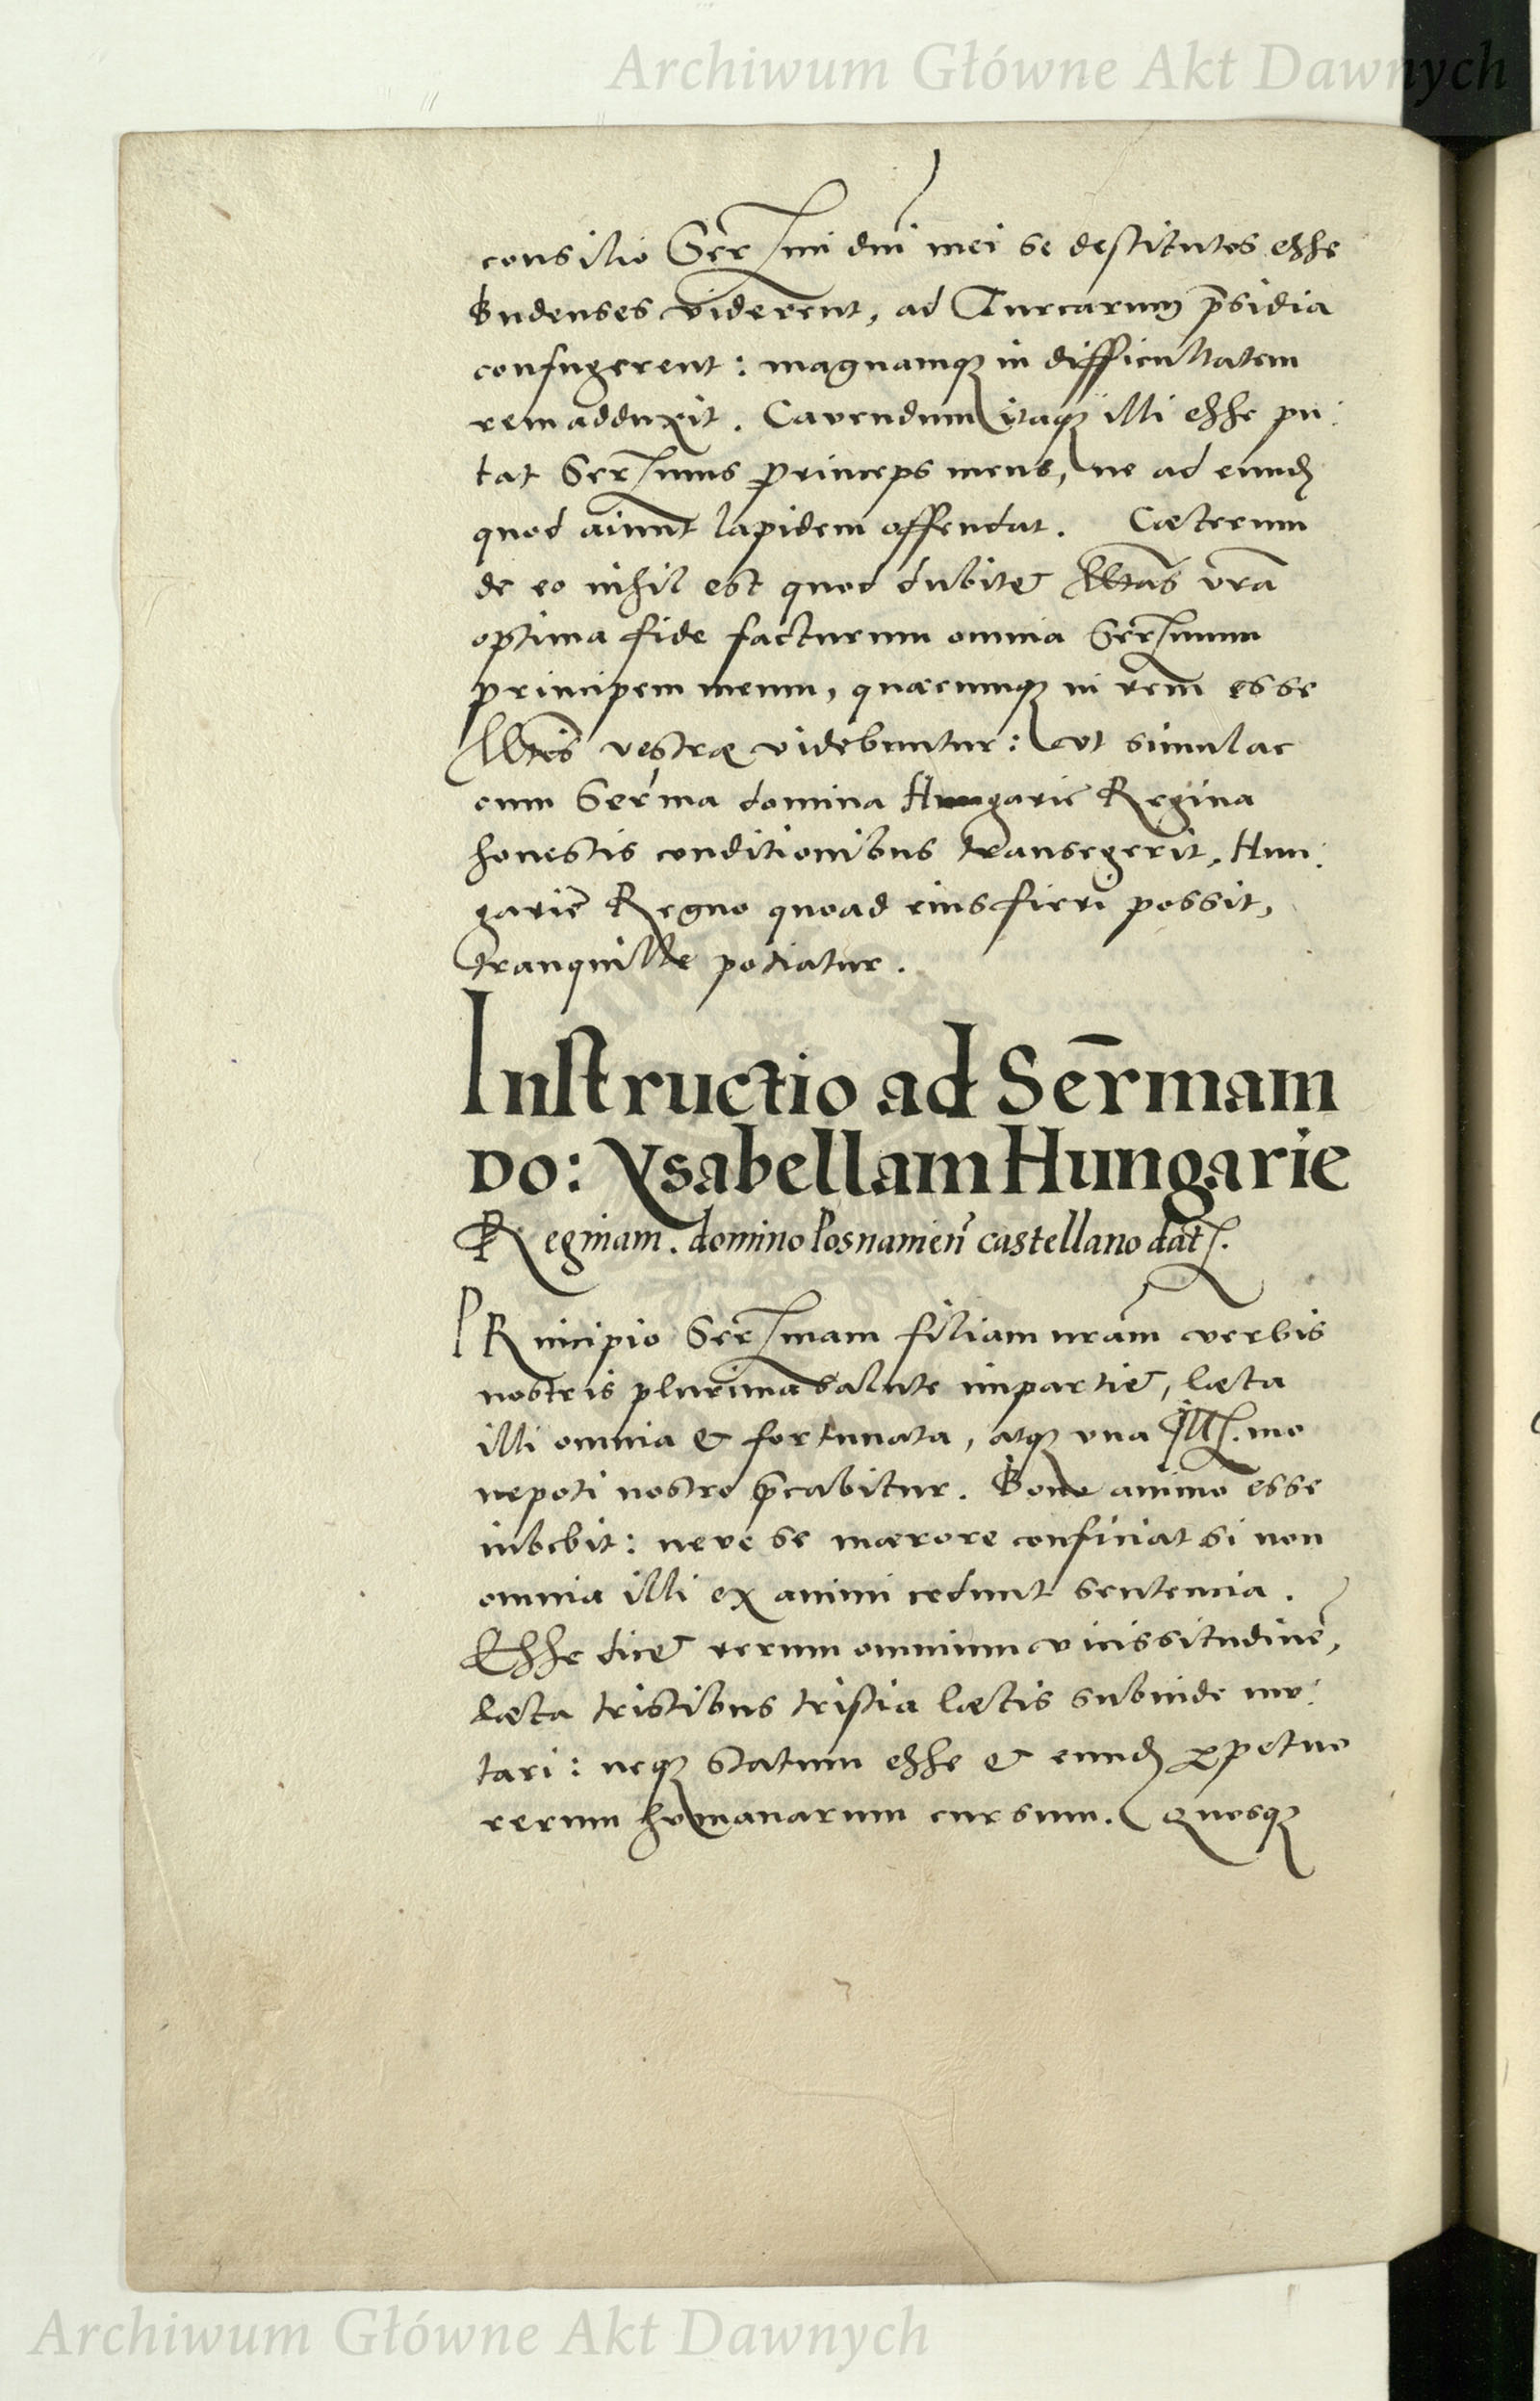 Archiwum Główne Akt Dawnych
consilio Serᷤmi dni mei se destitutos esse
Budenses viderent, ad Turcarum p̄sidia
confugerent : magnamqꝫ in difficultatem
rem adduxit. Cavendum itaqꝫ illi esse pu:
tat Serᷤmus princeps meus, ne ad eundē
quod aiunt lapidem offendat. Cæterum
de eo nihil est quod dubitet Mtās vrā
optima fide facturum omnia Serᷤmum
principem meum, quæcumqꝫ in rem esse
Mtis vestræ videbuntur : vt simulac
cum Ser'ma domina Hungariē Regina
honestis conditionibus transegerit, Hun:
gariē Regno quoad eius fieri possit,
tranquille potiatur.
Instructio ad Sēr̄mam
Do: Ysabellam Hungarie
Reginam. domino Posnanien̄ castellano dat.
PRincipio Serᷤmam filiam nrām verbis
nostris plurima salute impartiet, læta
illi omnia & fortunata, atqꝫ vna Ill.mo
nepoti nostro p̄cabitur. Bono animo esse
iubebit : neve se mærore conficiat si non
omnia illi ex animi cedunt sententia.
Esse dicet rerum omnium vicissitudinē,
læta tristibus tristia lætis subinde mu:
tari : neqꝫ statum esse & eundē ꝑpetuo
rerum humanarum cursum. Quosqꝫ
Archiwum Główne Akt Dawnych